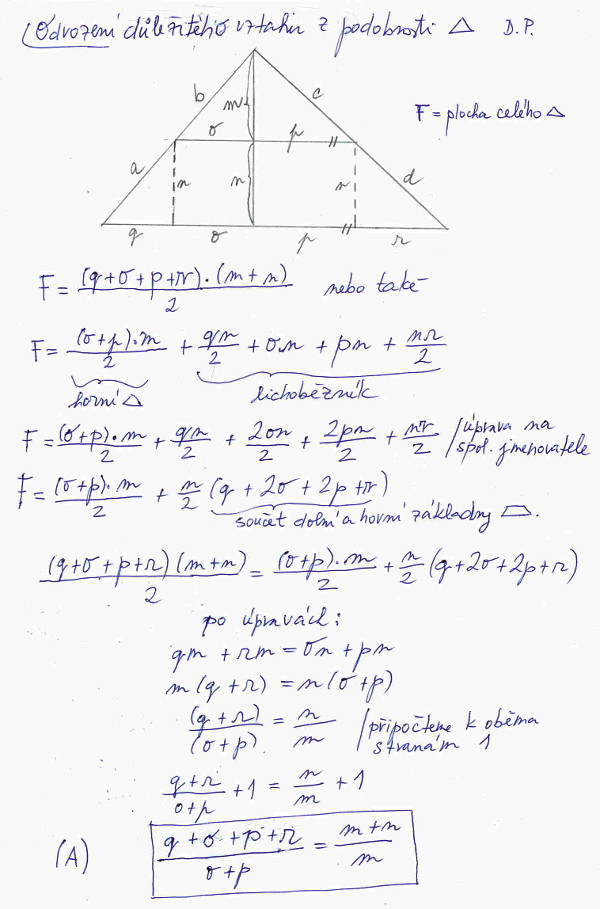 Odvození důležitého vztahu z podobnosti △ D.P.
F = plocha celého △
b m c
o p
a n n d
q o p r
F = (q+o+p+r)·(m+n)/2 nebo také
F = (o+p)·m/2 + qn/2 + o.n + pn + nr/2
horní △ lichoběžník
F = (o+p)·m/2 + qn/2 + 2on/2 + 2pn/2 + nr/2 /úprava na spol. jmenovatele
F = (o+p)·m/2 + n/2 (q + 2o + 2p + r)
součet dolní a horní základny ⏢.
(q+o+p+r)(m+n)/2 = (o+p)·m/2 + n/2 (q+2o+2p+r)
po úpravách:
qm + rm = on + pn
m(q+r) = n(o+p)
(q+r)/(o+p) = n/m /připočteme k oběma stranám 1
q+r/o+p + 1 = n/m + 1
(A) q+o+p+r/o+p = m+n/m